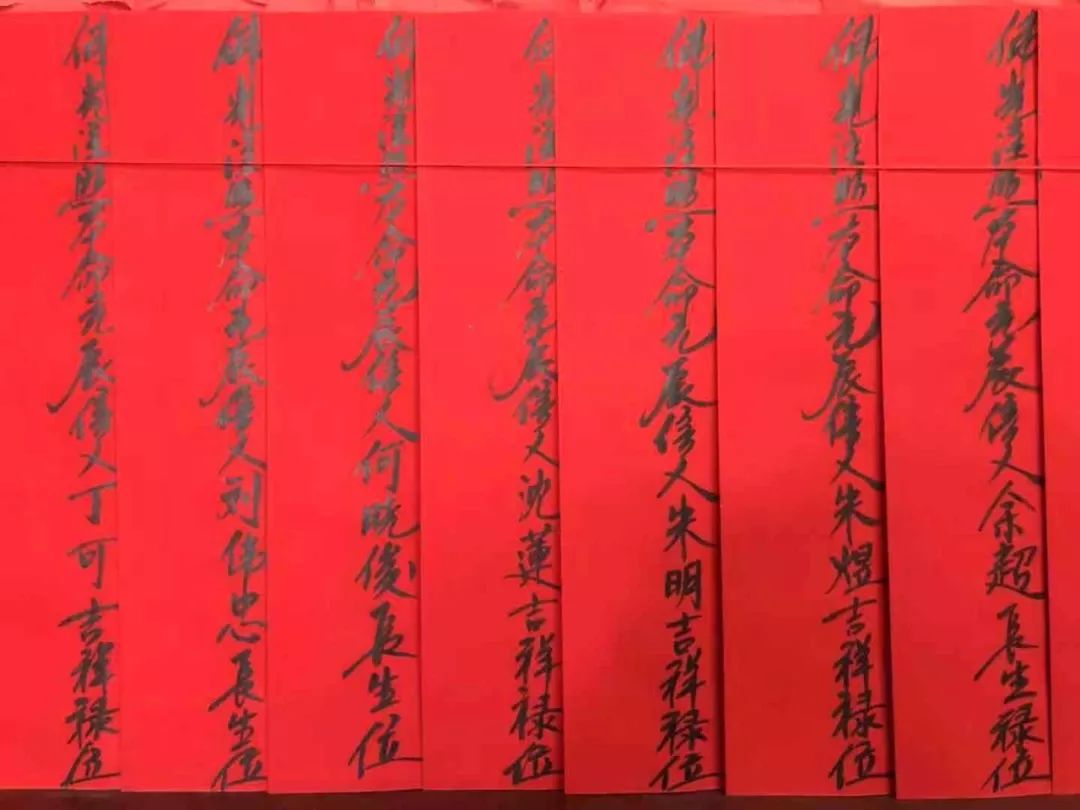 佛光注照本命元辰信人余超長生禄位
佛光注照本命元辰信人朱煜吉祥禄位
佛光注照本命元辰信人朱明吉祥禄位
佛光注照本命元辰信人沈蓮吉祥禄位
佛光注照本命元辰信人何晓俊長生位
佛光注照本命元辰信人刘伟忠長生位
佛光注照本命元辰信人丁可吉祥禄位